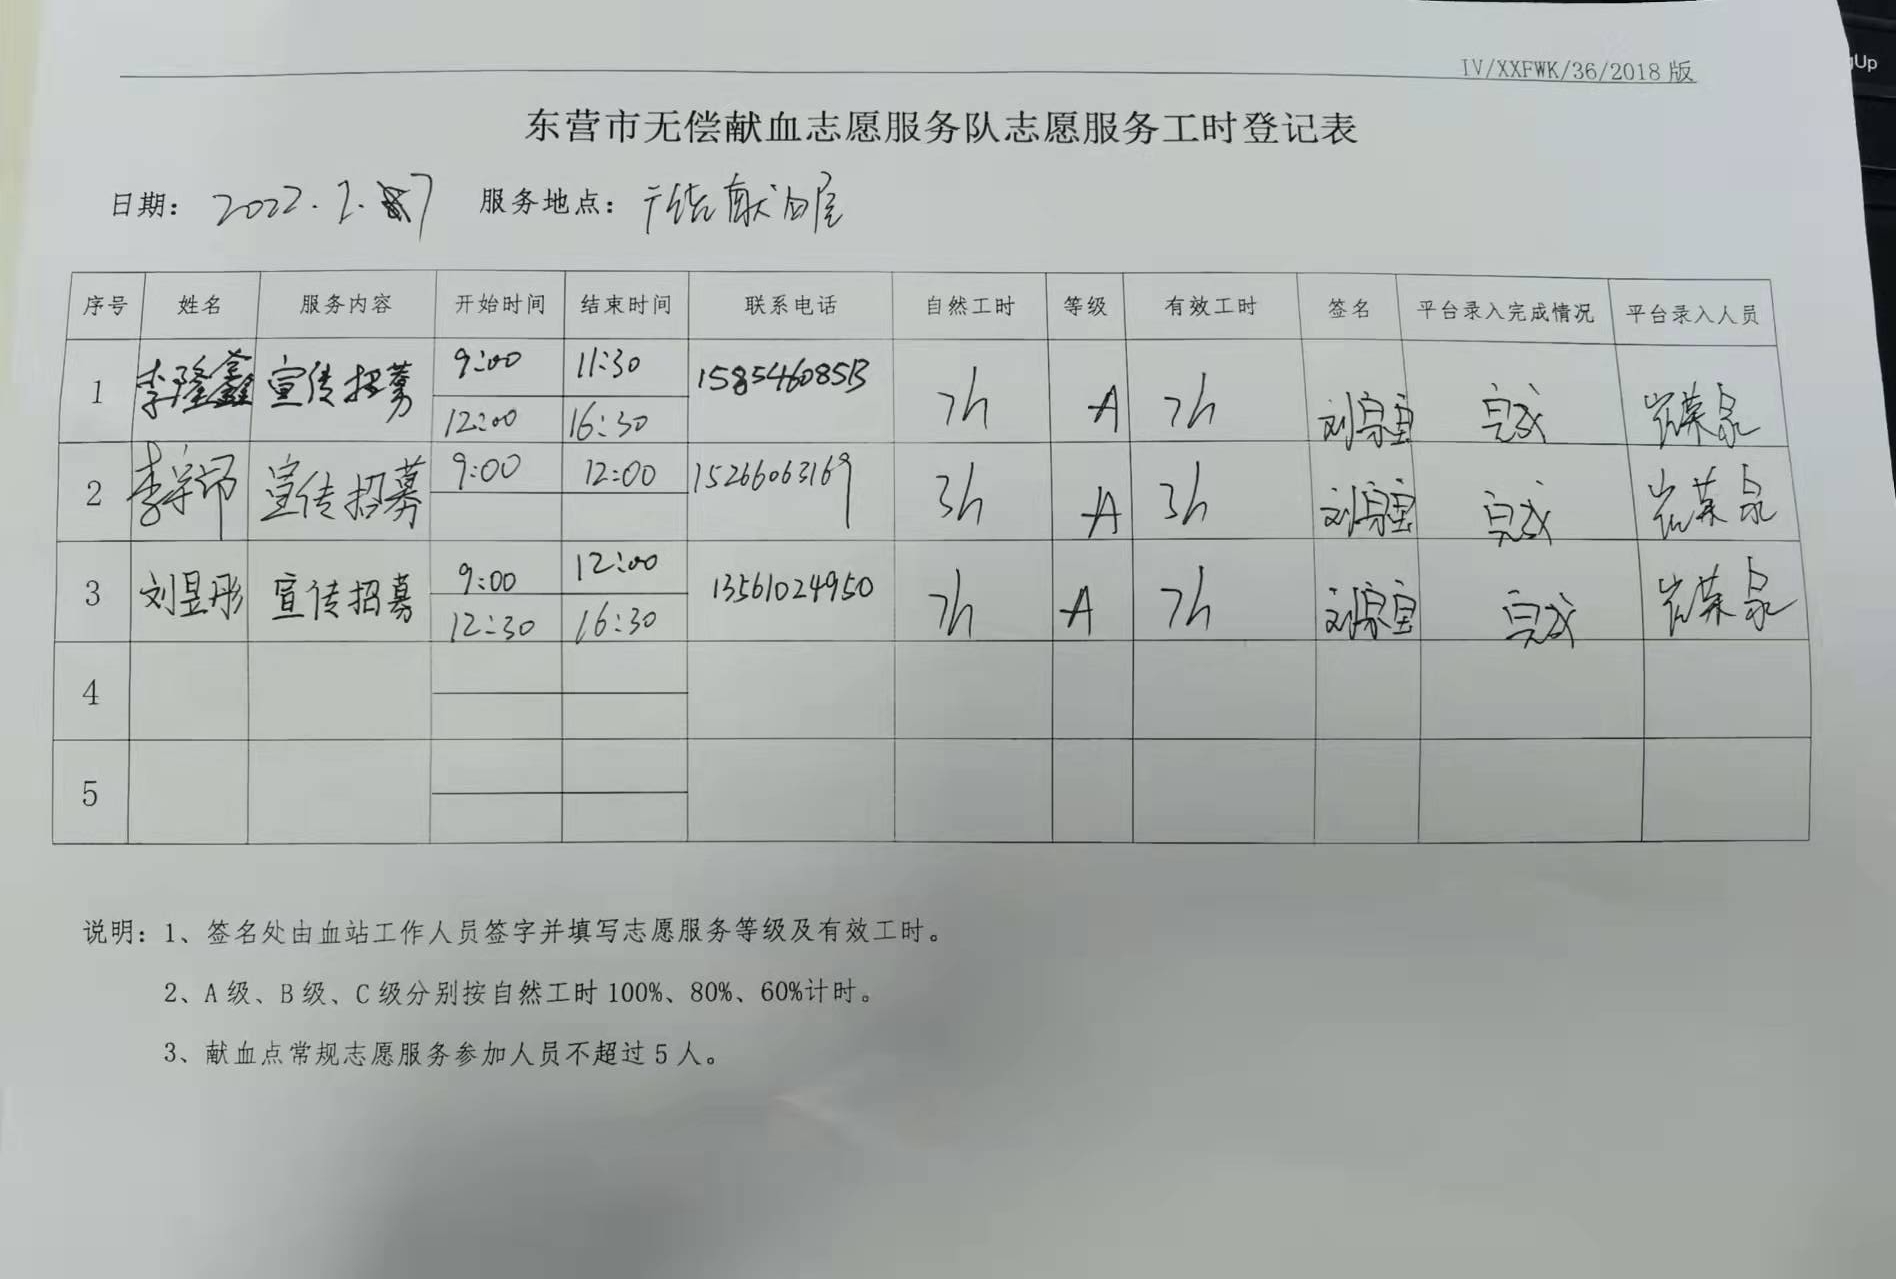 gUp
IV/XXFWK/36/2018版
东营市无偿献血志愿服务队志愿服务工时登记表
日期: 2022. 服务地点: 广饶献血屋
序号 姓名 服务内容 开始时间 结束时间 联系电话 自然工时 等级 有效工时 签名 平台录入完成情况 平台录入人员
1 李隆鑫 宣传招募 9:00 11:30 15854608513 7h A 7h 刘宗宝 完成 岩荣泉
12:00 16:30
2 宣传招募 9:00 12:00 15266063169 3h A 3h 刘宗宝 完成 岩荣泉
3 刘昱彤 宣传招募 9:00 12:00 13561024950 7h A 7h 刘宗宝 完成 岩荣泉
12:30 16:30
4
5
说明:1、签名处由血站工作人员签字并填写志愿服务等级及有效工时。
2、A级、B级、C级分别按自然工时100%、80%、60%计时。
3、献血点常规志愿服务参加人员不超过5人。